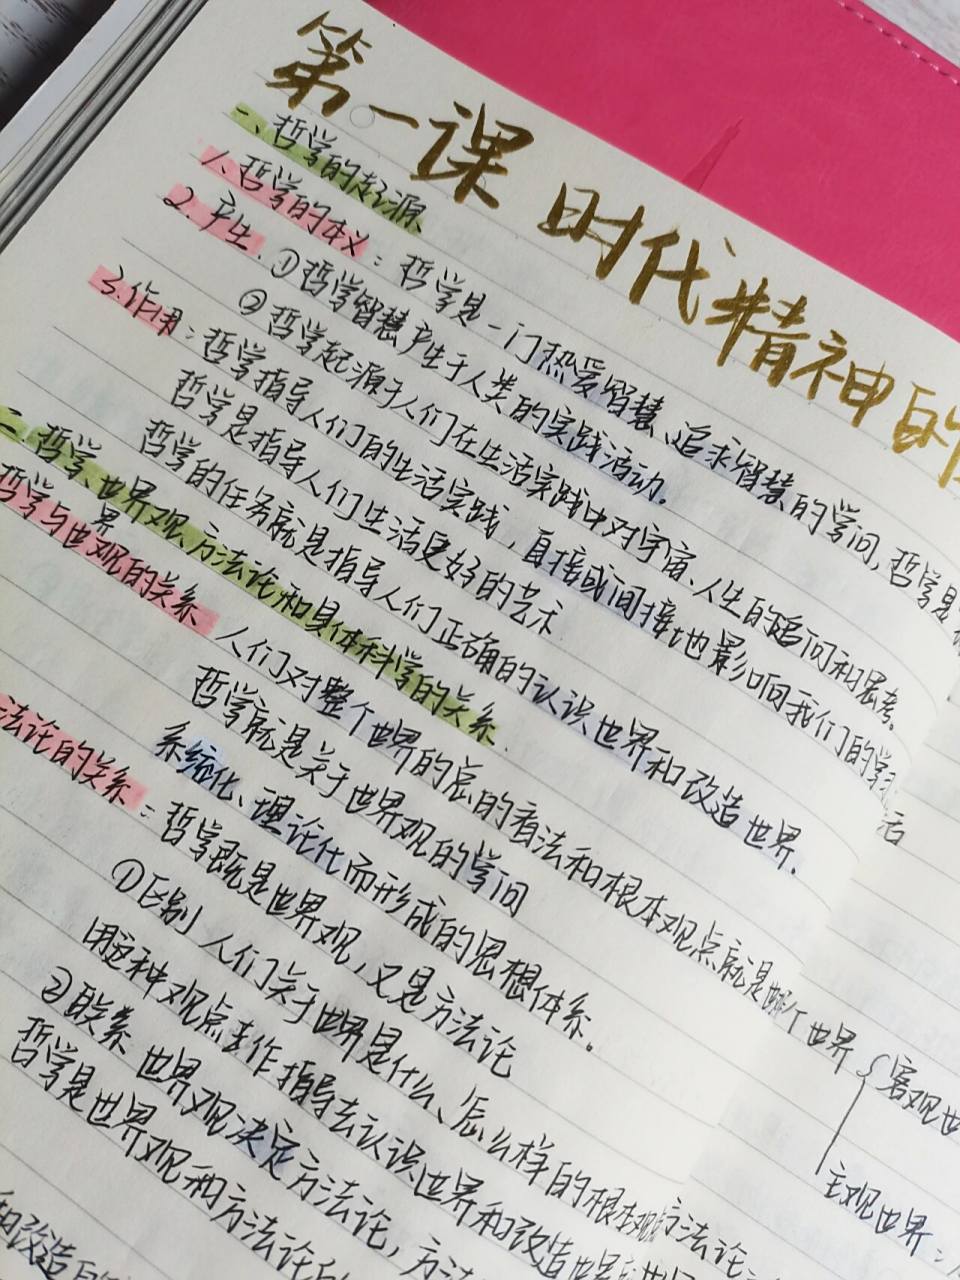 第一课 时代精神的
一、哲学的起源
1、哲学的本义：哲学是一门热爱智慧、追求智慧的学问，哲学是
2.产生.①哲学智慧产生于人类的实践活动。
②哲学起源于人们在生活实践中对宇宙、人生的追问和思考。
3.作用：哲学指导人们的生活实践，直接或间接地影响我们的学习
生活
哲学是指导人们生活更好的艺术
哲学的任务就是指导人们正确的认识世界和改造世界.
二.哲学、世界观、方法论和具体科学的关系.
哲学与世界观的关系 人们对整个世界的总的看法和根本观点就是 世界
哲学就是关于世界观的学问
系统化、理论化而形成的思想体系。
法论的关系：哲学既是世界观，又是方法论
①区别 人们关于世界是什么、怎么样的根本观点方法论
用这种观点去作指导去认识世界和改造世界
②联系 世界观决定方法论，方法
哲学是世界观和方法论的
和改造的
客观世
主观世界：